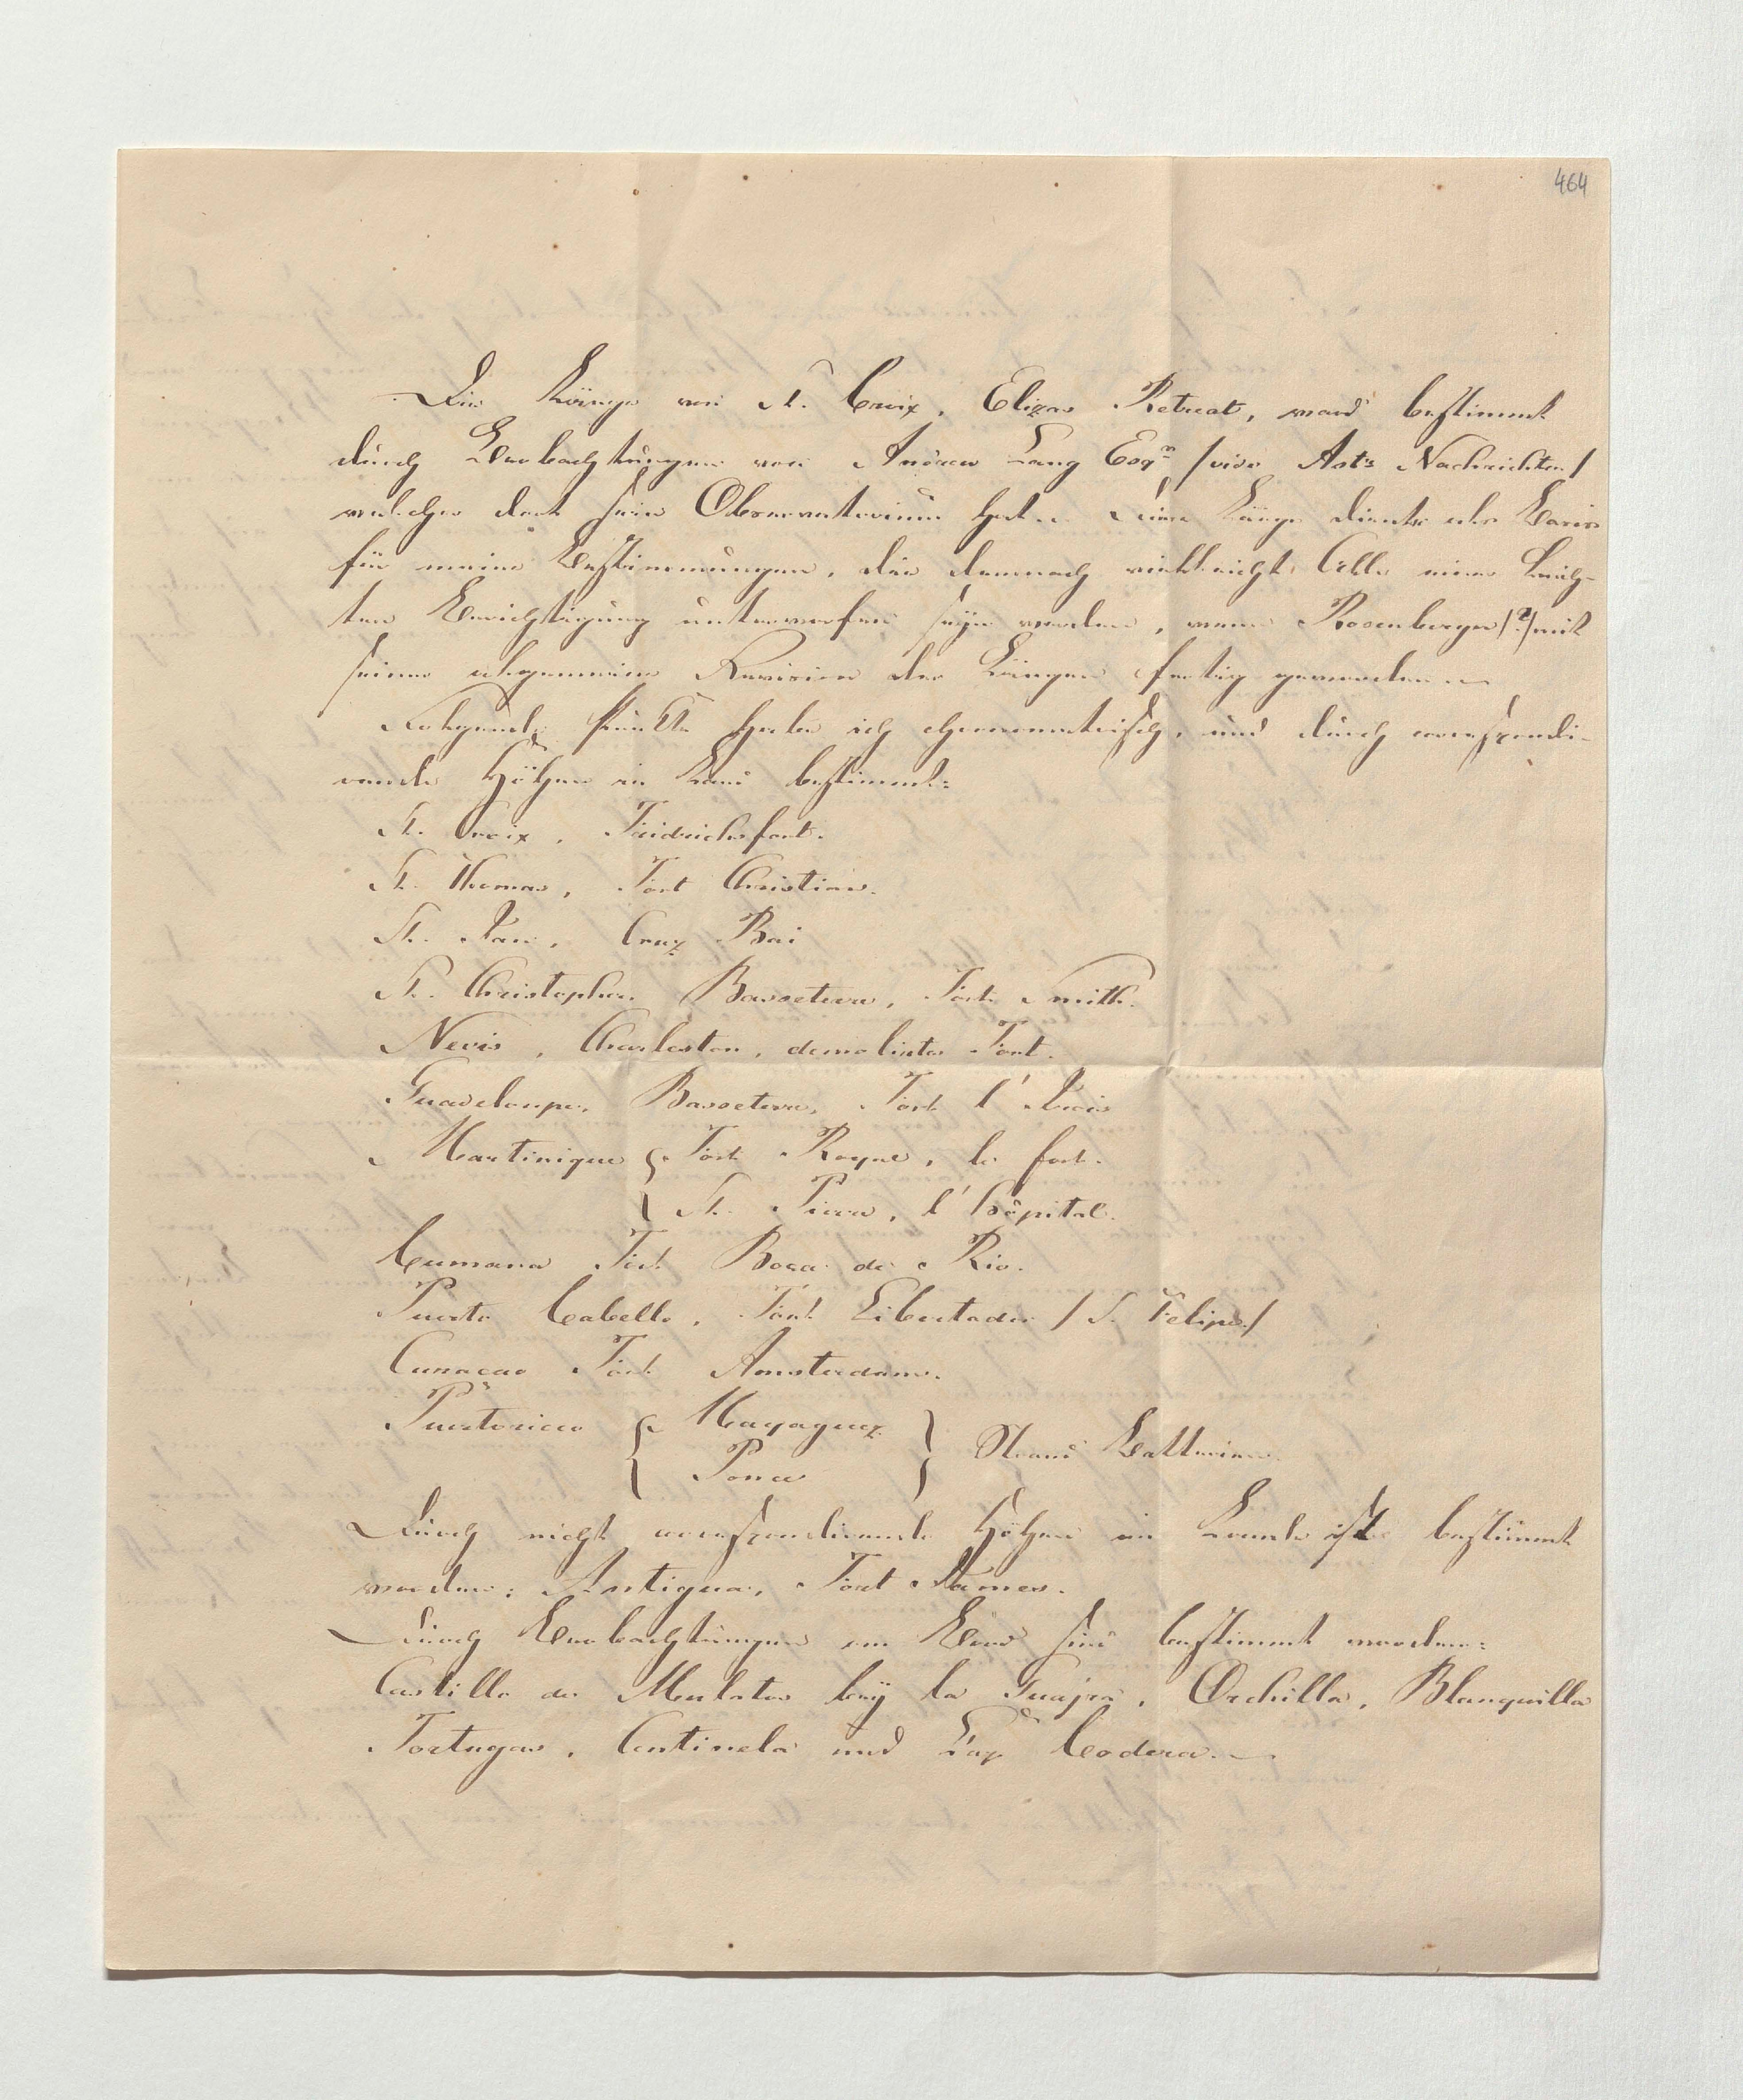 464
Die Länge von St. Croix, Elizas Retreat, ward bestimmt
durch Beobachtungen von Andrew Lang Esqr /vide Ast: Nachrichten/
welcher dort sein Observatorium hat. Diese Länge diente als Basis
für meine Bestimmungen, die demnach vielleicht Alle einer leich-
ten Berichtigung unterworfen seyn werden, wenn Rosenberger /?/ mit
seiner allgemeinen Revision der Längen fertig geworden.
Folgende Punkte habe ich chronometrisch, und durch correspondi-
rende Höhen in Land bestimmt:
St. Croix, Fridrichsfort.
St. Thomas, Fort Christian.
St. Jan, Cruz Bai
St. Christopher Basseterre, Fort Smith.
Nevis, Charleston, demolirtes Fort.
Guadeloupe, Basseterre, Fort l'
Martinique { Fort Royal, le fort.
{ St. Pierre, l'hôpital.
Cumana Fort Boca de Rio.
Puerto Cabello, Fort Libertador / S. Felipe /
Curacao Fort Amsterdam.
Puertoricco { Mayaguez
Ponce } Strand Batterien.
Durch nicht correspondirende Höhen im Lande ist bestimmt
worden: Antigua, Fort James.
Durch Beobachtungen am Bord sind bestimmt worden:
Castillo de Mulatos bey la Guajra, Orchilla, Blanquilla
Tortugas, Centinela und Cap Codera.